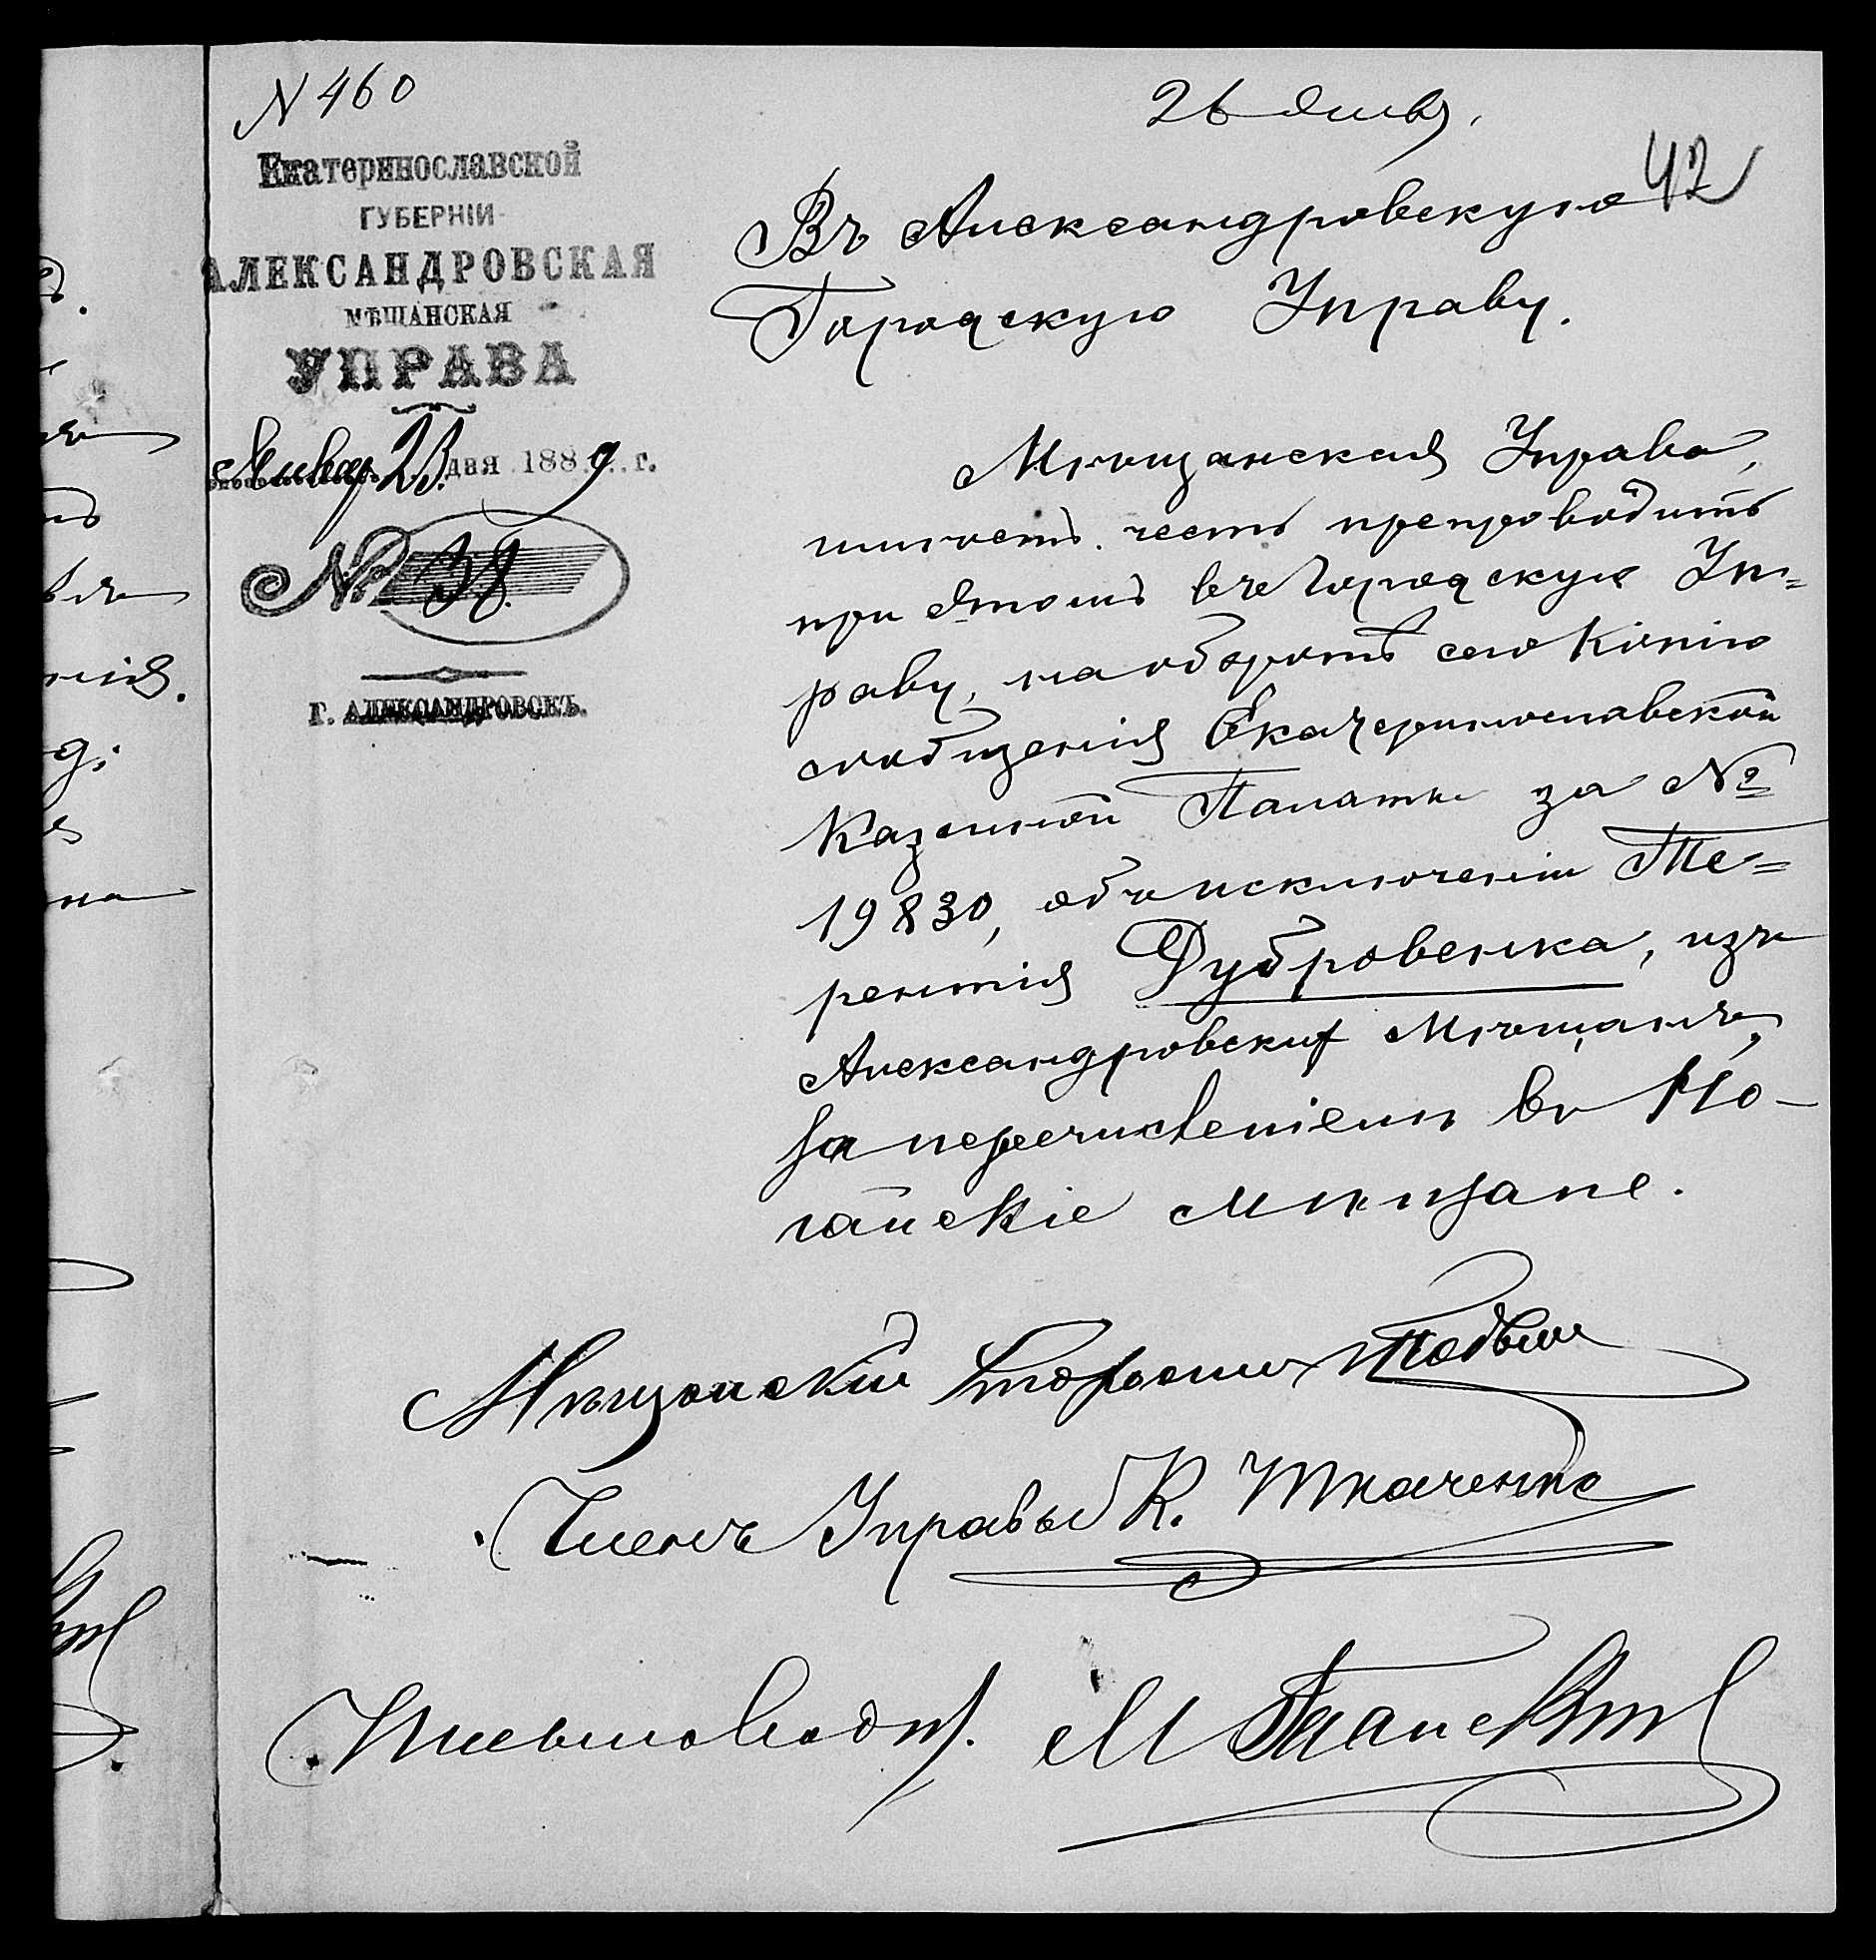 N 460
26 Янв.
42
Екатеринославской
ГУБЕРНІИ
АЛЕКСАНДРОВСКАЯ
МѢЩАНСКАЯ
УПРАВА
Январ 23 дня 1889 г.
№ 38.
Г. АЛЕКСАНДРОВСКЪ.
Въ Александровскую
Городскую Управу.
Мѣщанская Управа,
имѣетъ честь препроводить
при этомъ въ Городскую Уп=
раву, на оборотѣ сего Копію
сообщенія Екатеринославской
Казенной Палаты за №
19830, объ исключеніи Те=
рентія Дубровенка, изъ
Александровских Мѣщанъ,
за перечисленіемъ въ Но-
гайскіе мѣщане.
Мѣщанскій Староста
Членъ Управы К. Ткаченко
Письмоводит. М